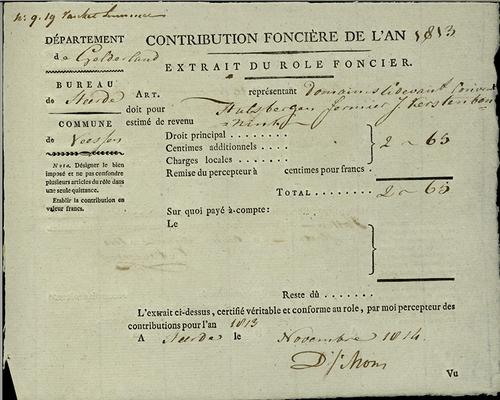 DÉPARTEMENT
de Gelderland
BUREAU
de Heerde
COMMUNE
de Veessen
Nota. Désigner le bien
imposé et ne pas confondre
plusieurs articles du rôle dans
une seule quittance.
Etablir la contribution en
valeur francs.
CONTRIBUTION FONCIÈRE DE L'AN 1813
EXTRAIT DU ROLE FONCIER.
ART. représentant Domains
doit pour Hulsbergen fermier
estimé de revenu
Droit principal
Centimes additionnels 2 ~ 65
Charges locales
Remise du percepteur à centimes pour francs.
TOTAL 2 ~ 65
Sur quoi payé à-compte:
Le
Reste dû
L'exrait ci-dessus, certifié véritable et conforme au role, par moi percepteur des
contributions pour l'an 1813
A Heerde le Novembre 1814.
Vu